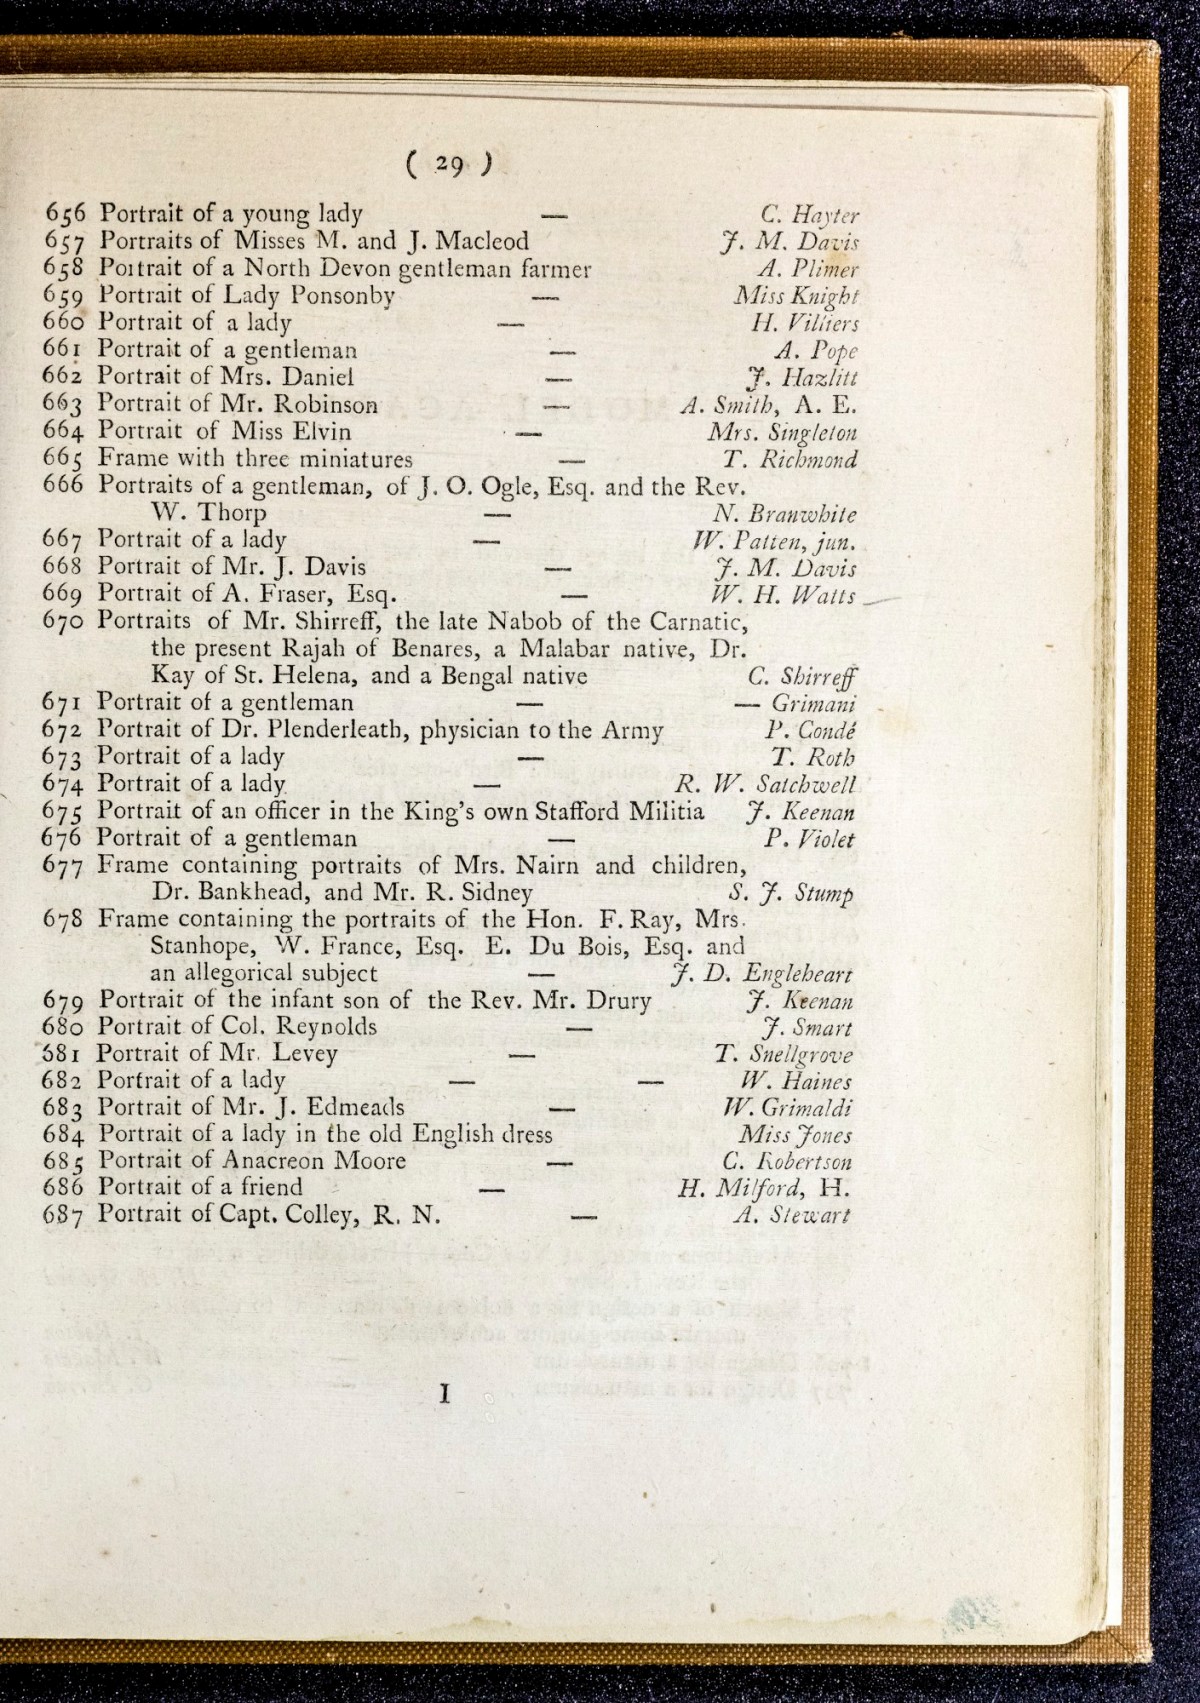 ( 29 )
656 Portrait of a young lady — C. Hayter
657 Portraits of Misses M. and J. Macleod J. M. Davis
658 Portrait of a North Devon gentleman farmer A. Plimer
659 Portrait of Lady Ponsonby — Miss Knight
660 Portrait of a lady — H. Villiers
661 Portrait of a gentleman — A. Pope
662 Portrait of Mrs. Daniel — J. Hazlitt
663 Portrait of Mr. Robinson — A. Smith, A. E.
664 Portrait of Miss Elvin — Mrs. Singleton
665 Frame with three miniatures — T. Richmond
666 Portraits of a gentleman, of J. O. Ogle, Esq. and the Rev.
W. Thorp — N. Branwhite
667 Portrait of a lady — W. Patten, jun.
668 Portrait of Mr. J. Davis — J. M. Davis
669 Portrait of A. Fraser, Esq. — W. H. Watts
670 Portraits of Mr. Shirreff, the late Nabob of the Carnatic,
the present Rajah of Benares, a Malabar native, Dr.
Kay of St. Helena, and a Bengal native C. Shirreff
671 Portrait of a gentleman — — Grimani
672 Portrait of Dr. Plenderleath, physician to the Army P. Condé
673 Portrait of a lady — T. Roth
674 Portrait of a lady — R. W. Satchwell
675 Portrait of an officer in the King's own Stafford Militia J. Keenan
676 Portrait of a gentleman — P. Violet
677 Frame containing portraits of Mrs. Nairn and children,
Dr. Bankhead, and Mr. R. Sidney S. J. Stump
678 Frame containing the portraits of the Hon. F. Ray, Mrs.
Stanhope, W. France, Esq. E. Du Bois, Esq. and
an allegorical subject — J. D. Engleheart
679 Portrait of the infant son of the Rev. Mr. Drury J. Keenan
680 Portrait of Col. Reynolds — J. Smart
681 Portrait of Mr. Levey — T. Snellgrove
682 Portrait of a lady — — W. Haines
683 Portrait of Mr. J. Edmeads — W. Grimaldi
684 Portrait of a lady in the old English dress Miss Jones
685 Portrait of Anacreon Moore — C. Robertson
686 Portrait of a friend — H. Milford, H.
687 Portrait of Capt. Colley, R. N. — A. Stewart
I